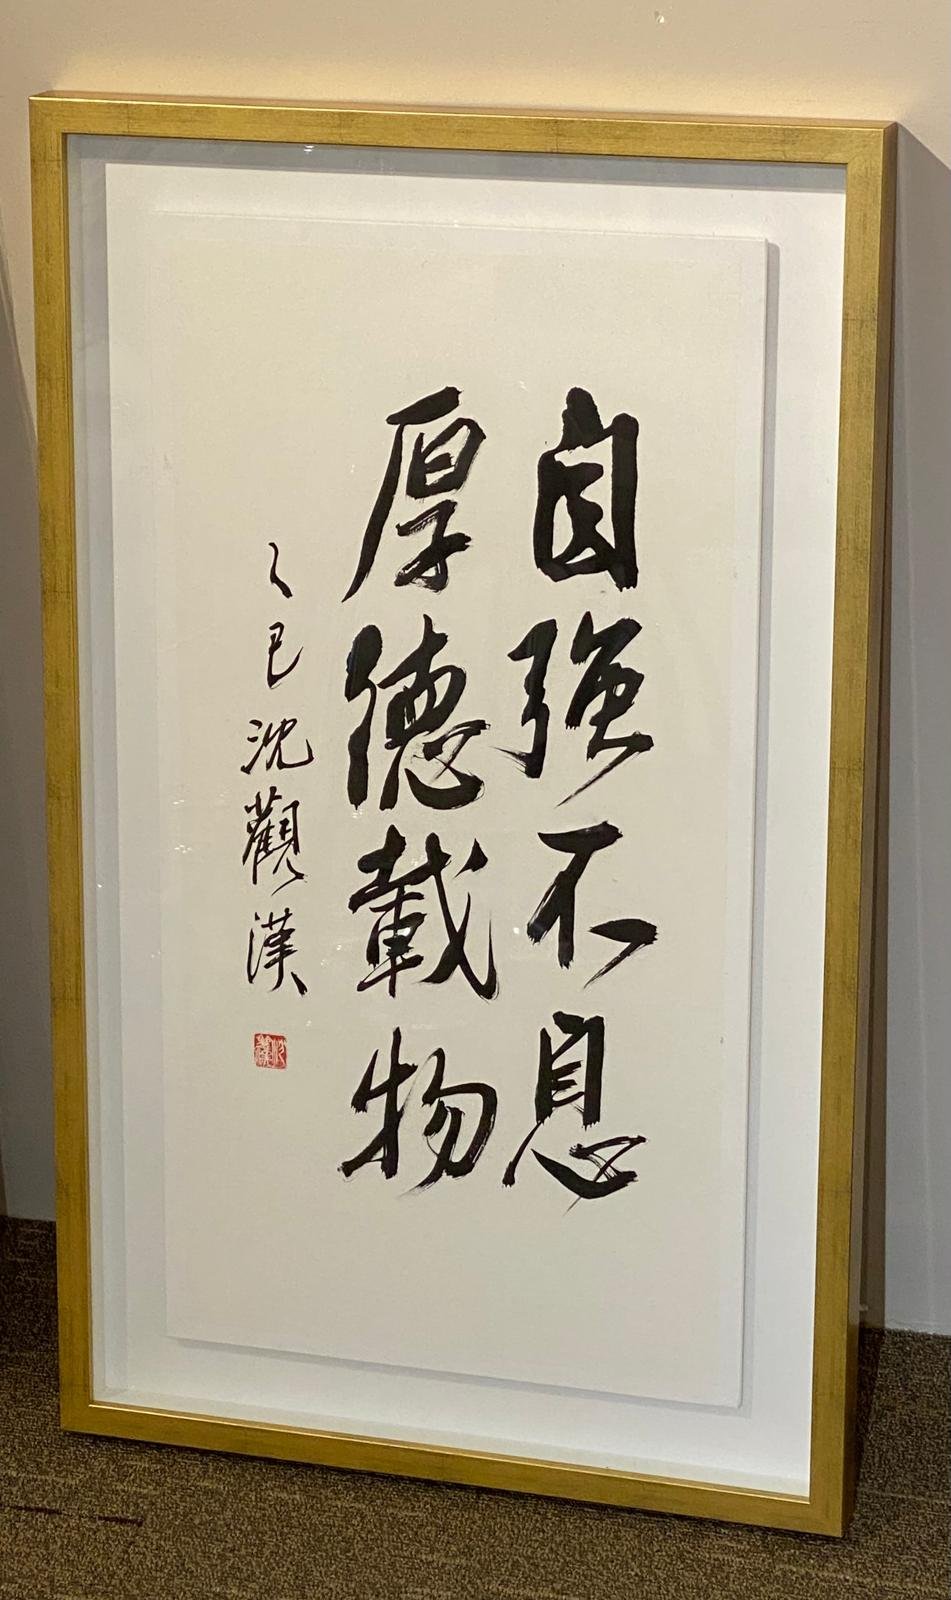 自強不息
厚德載物
乙巳沈觀漢